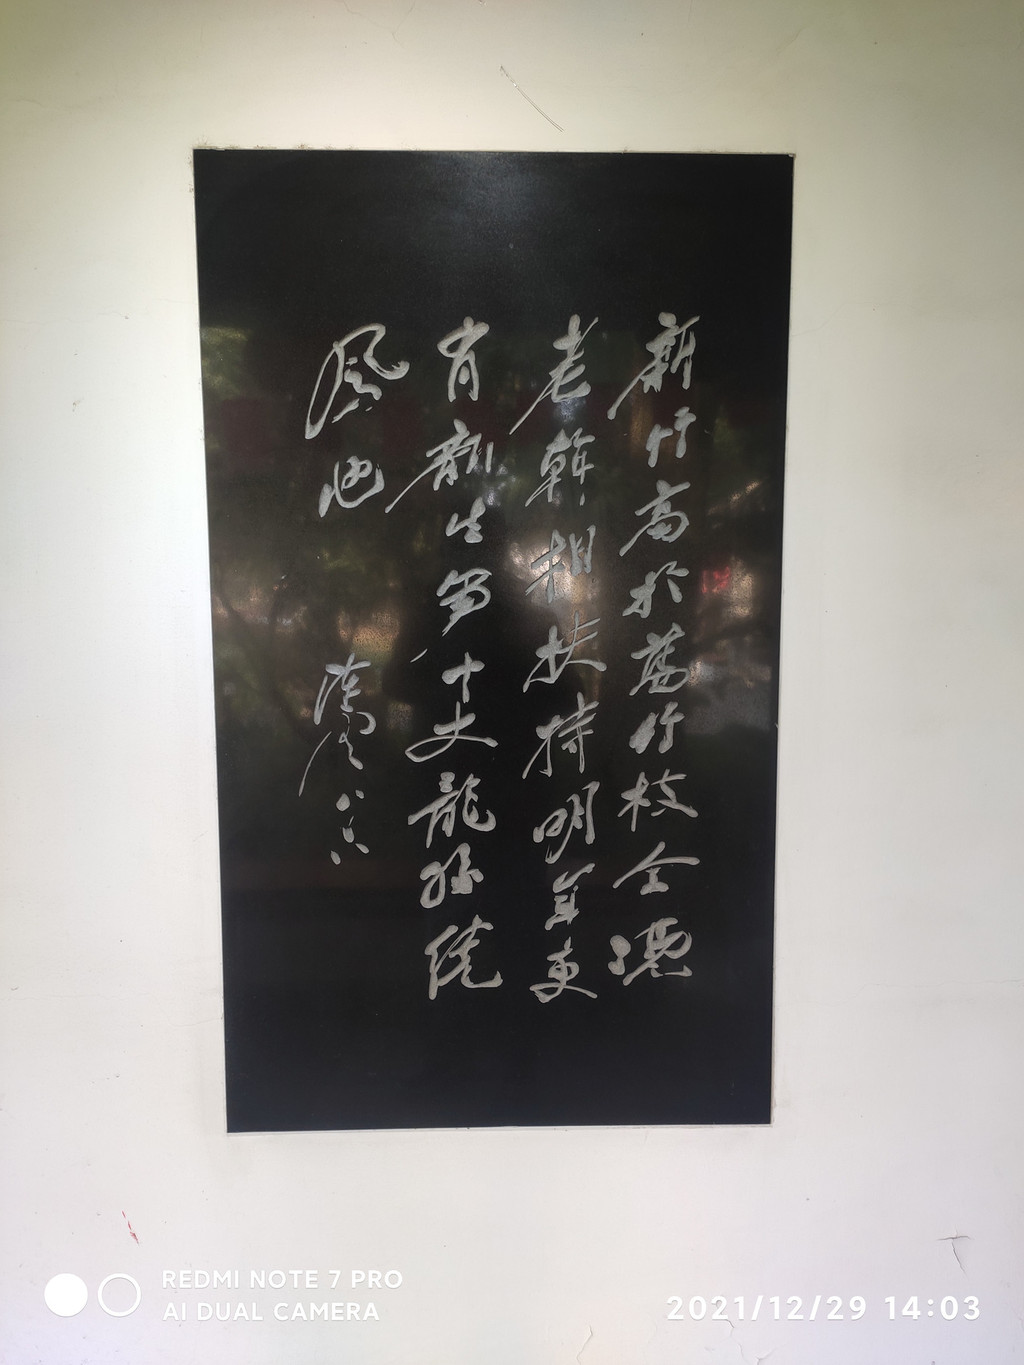 新竹高於舊竹枝全憑
老幹相扶持明年更
有新生 十丈龍孫繞
鳳池 陳雲
REDMI NOTE 7 PRO
AI DUAL CAMERA
2021/12/29 14:03